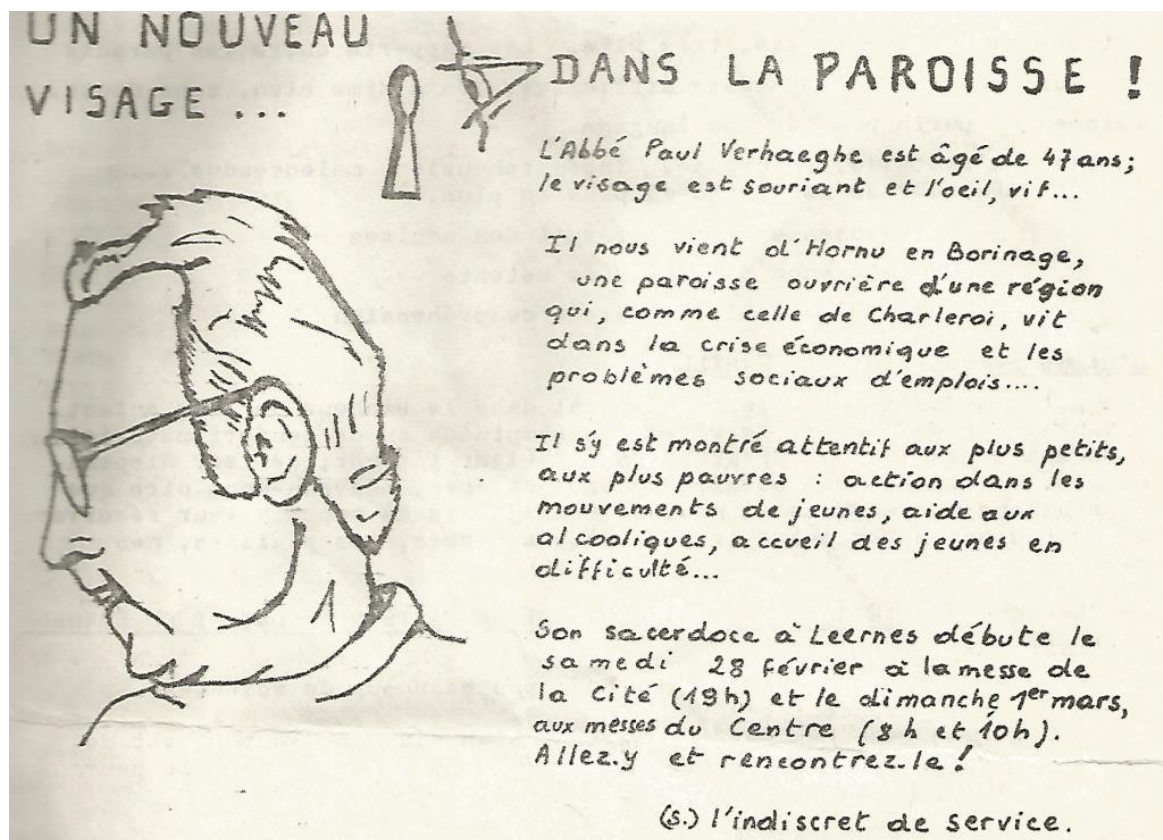 UN NOUVEAU
VISAGE ...
DANS LA PAROISSE !
L'Abbé Paul Verhaeghe est âgé de 47 ans;
le visage est souriant et l'oeil, vif...
Il nous vient d'Hornu en Borinage,
une paroisse ouvrière d'une région
qui, comme celle de Charleroi, vit
dans la crise économique et les
problèmes sociaux d'emplois....
Il s'y est montré attentif aux plus petits,
aux plus pauvres : action dans les
mouvements de jeunes, aide aux
alcooliques, accueil des jeunes en
difficulté...
Son sacerdoce à Leernes débute le
samedi 28 février à la messe de
la Cité (19h) et le dimanche 1er mars,
aux messes du Centre (8h et 10h).
Allez.y et rencontrez.le !
(s.) l'indiscret de service.